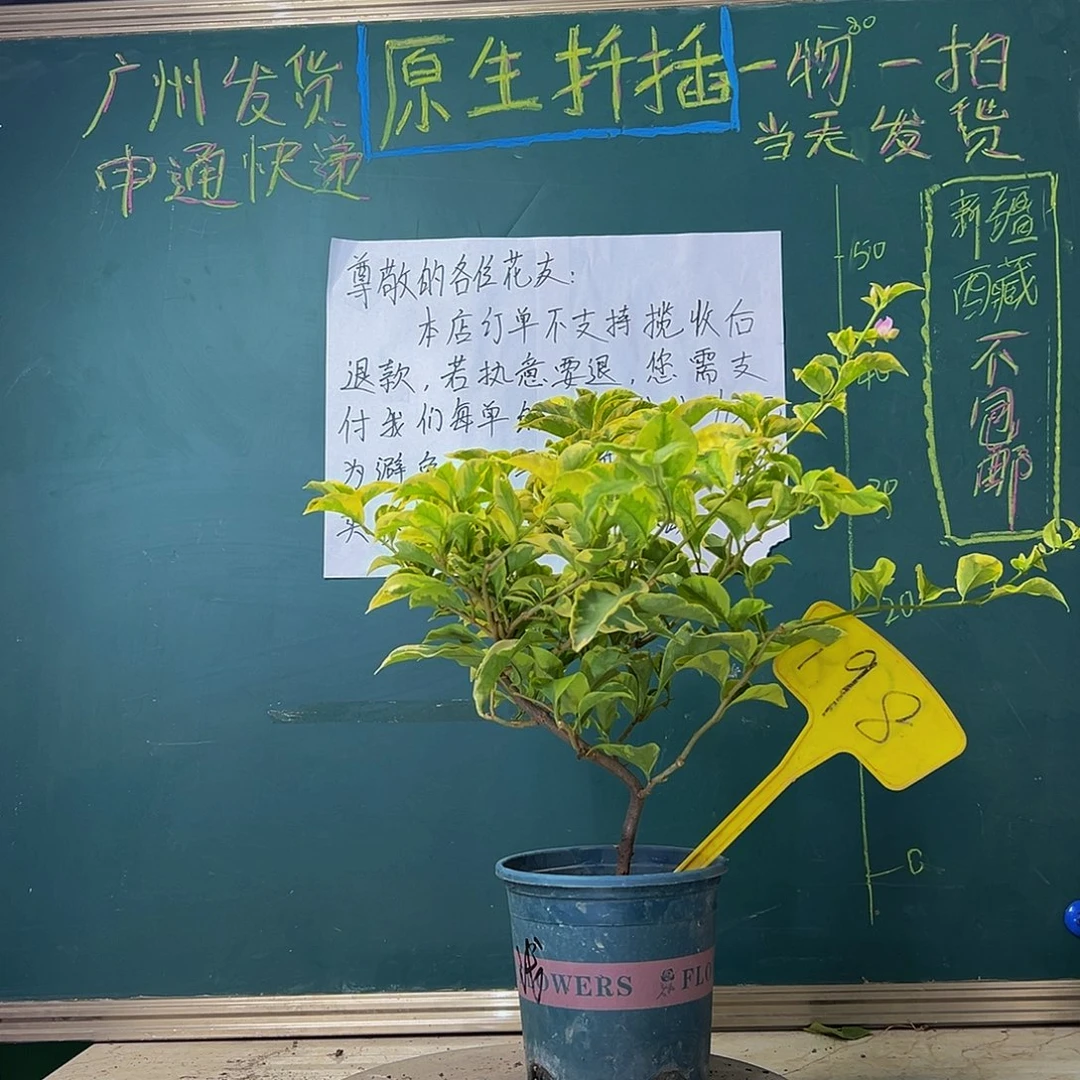 广州发货
申通快递
原生扦插
一物一拍
当天发货
80
新疆
西藏
不
包
邮
尊敬的各位花友：
本店订单不支持揽收后
退款，若执意要退，您需支
付我们每单
为避免
150
20
0
198
OWERS
FLO